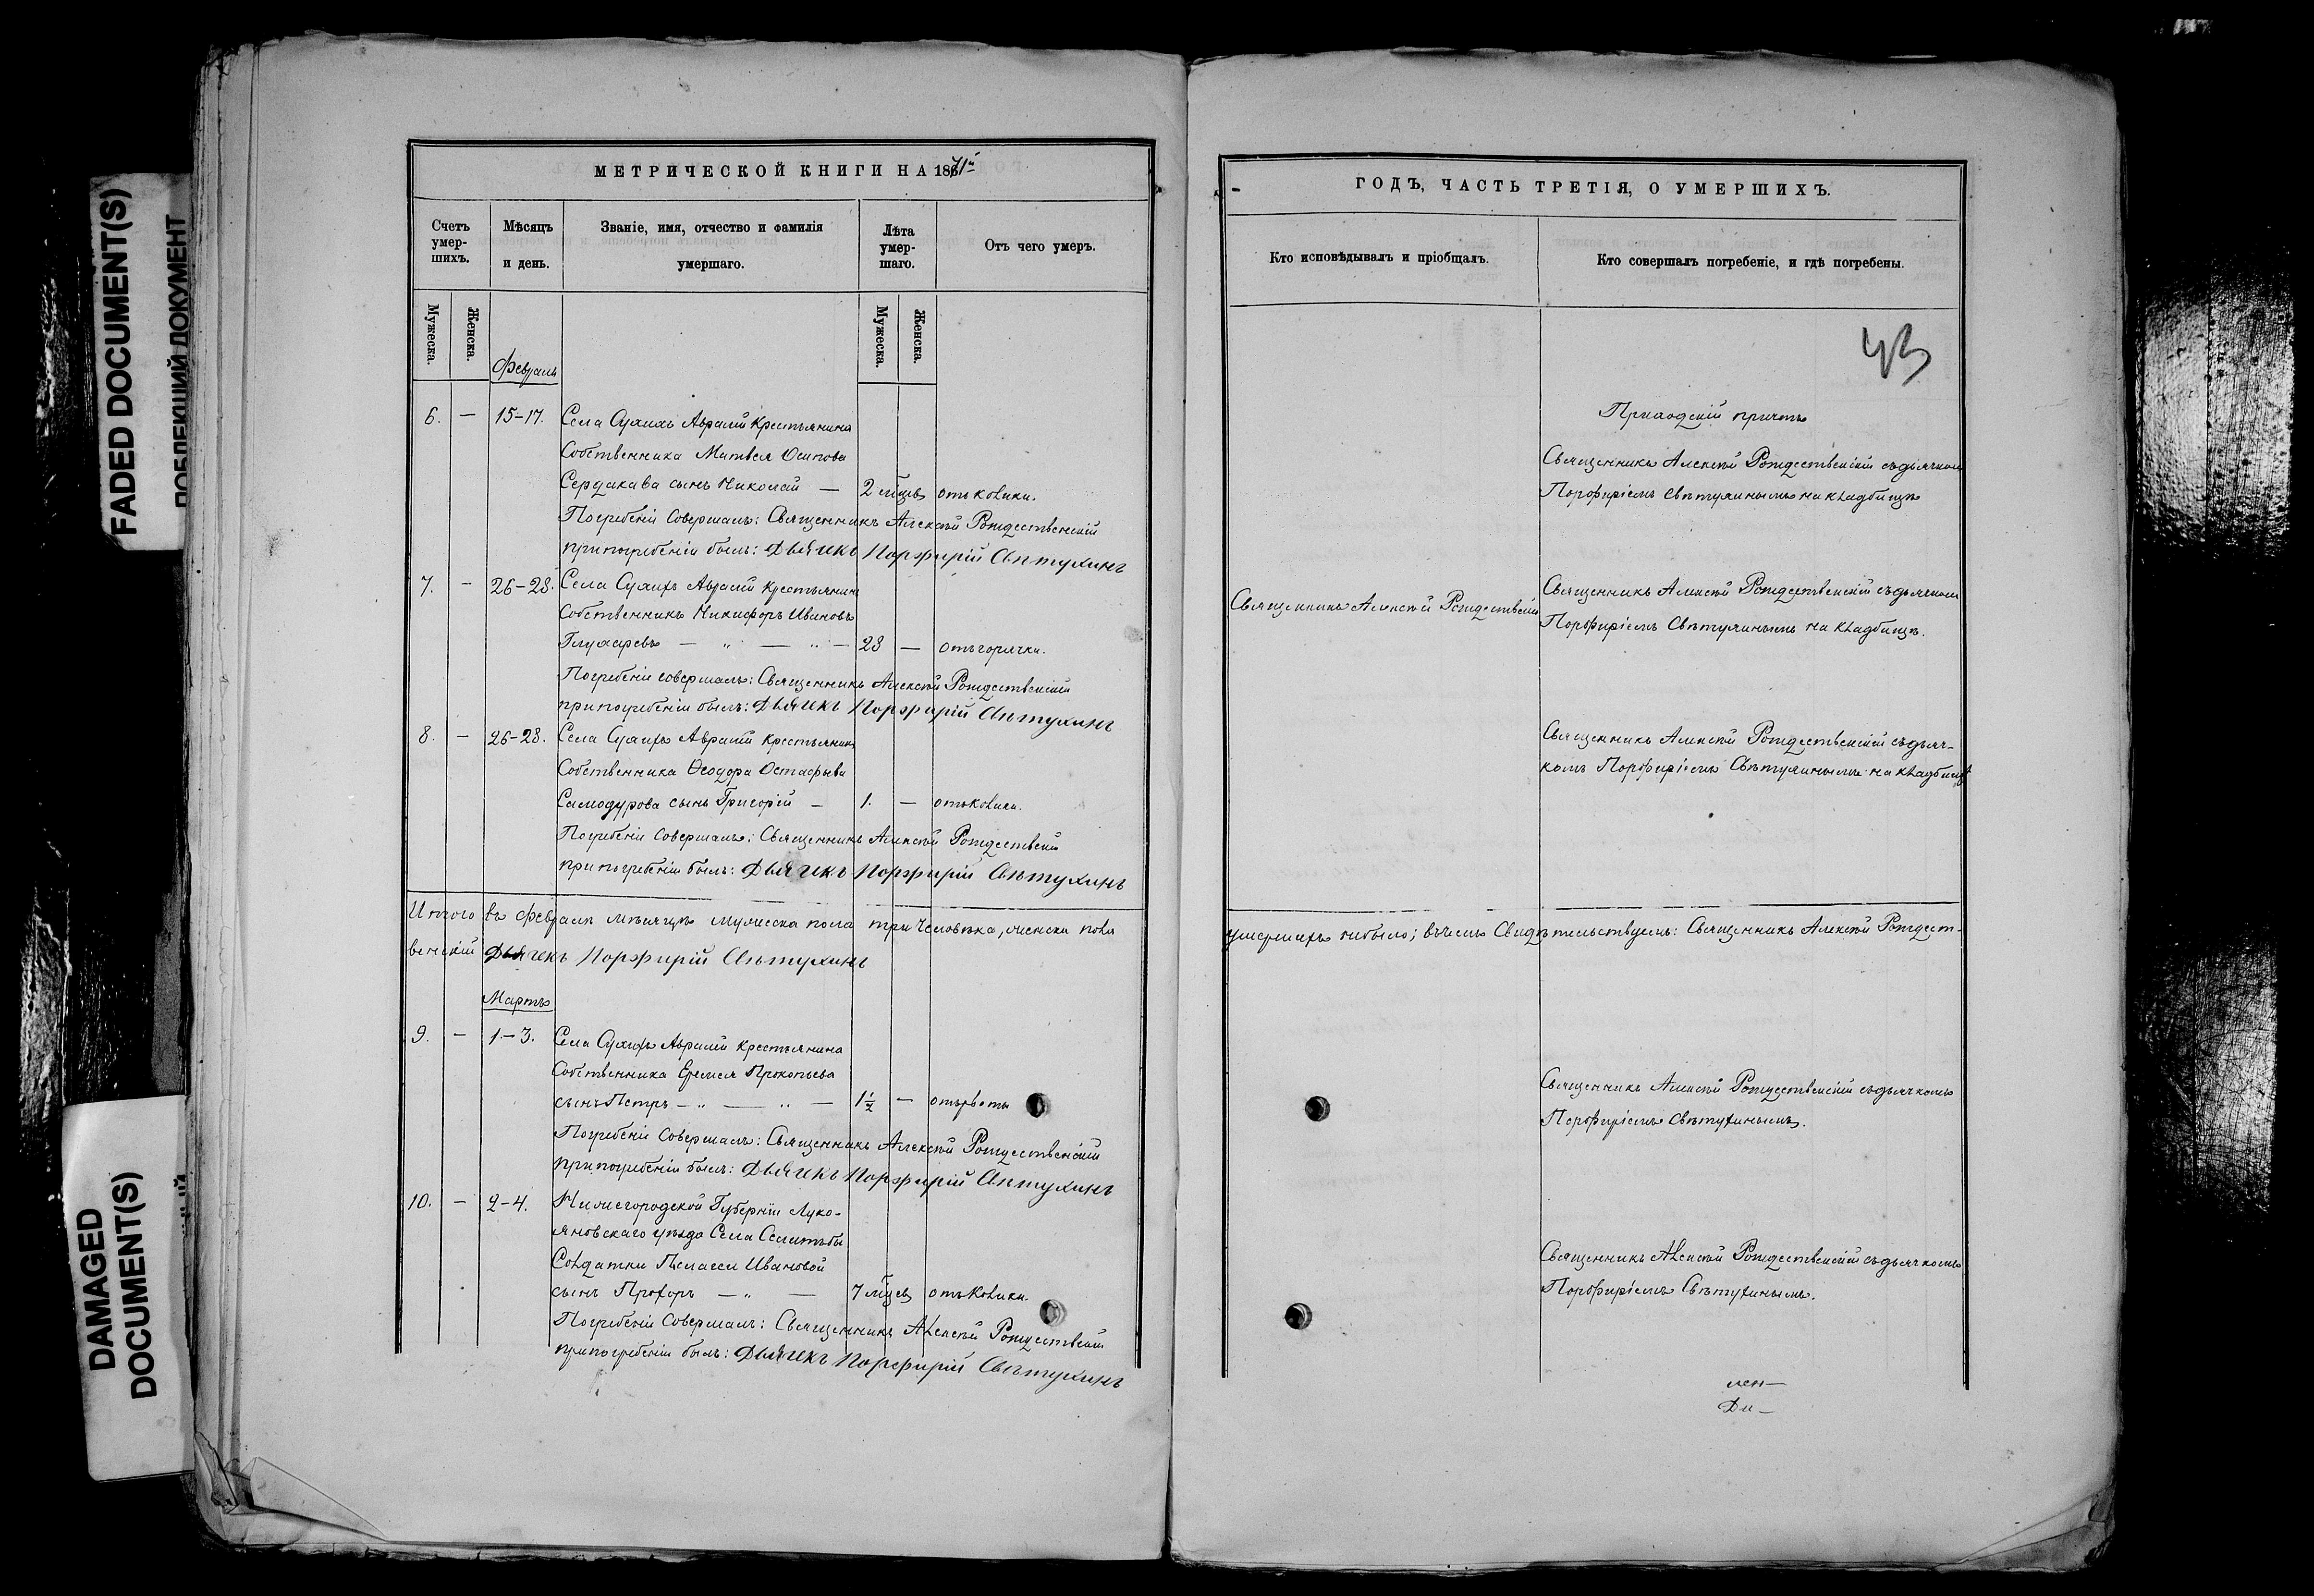 FADED DOCUMENT(S)
DAMAGED
DOCUMENT(S)
МЕТРИЧЕСКОЙ КНИГИ НА 1871й
Счетъ
умер-
шихъ.
Мѣсяцъ
и день.
Званіе, имя, отчество и фамилія
умершаго.
Лѣта
умер-
шаго.
Отъ чего умеръ.
Мужеска.
Женска.
Мужеска.
Женска.
Февраль
6. — 15–17. Села Сухихъ Авралей Крестьянина
Собственника Матвея Осипова
Сердакава сынъ Николай — 2 мѣцевъ отъ Коклики.
Погребеніе Совершалъ: Священникъ Алексѣй Рождественскій
при погребеніи былъ: Дьячекъ Порфирій Свѣтухинъ
7. — 26–28. Села Сухихъ Авралей Крестьянинъ
Собственникъ Никифоръ Ивановъ
Глухаревъ — „ — „ — 28 — отъ горячки.
Погребеніе совершалъ: Священникъ Алексѣй Рождественскій
при погребеніи былъ: Дьячекъ Порфирій Свѣтухинъ
8. — 26–28. Села Сухихъ Авралей Крестьянина
Собственника Ѳеодора Остафьева
Самодурова сынъ Григорій — 1. — отъ
Погребеніе Совершалъ: Священникъ Алексѣй Рождествскій
при погребеніи былъ: Дьячекъ Порфирій Свѣтухинъ
Итого въ Февралѣ мѣсяцѣ мужеска пола три Человѣка, женска пола
венскій Дьячекъ Порфирій Свѣтухинъ
Мартъ
9. — 1–3. Села Сухихъ Авралей Крестьянина
Собственника Еремея Прокопьева
сынъ Петръ — „ — „ — 1½ — отъ рвоты
Погребеніе Совершалъ: Священникъ Алексѣй Рождественскій
при погребеніи былъ: Дьячекъ Порфирій Свѣтухинъ
10. — 2–4. Нижегородской Губерніи Луко-
яновскаго уѣзда Села Селитьбы
Солдатки Пелагеи Ивановой
сынъ Прохоръ — „ — 7 мѣцевъ отъ
Погребеніе Совершалъ: Священникъ Алексѣй Рождествскій
при погребеніи былъ: Дьячекъ Порфирій Свѣтухинъ
ГОДЪ, ЧАСТЬ ТРЕТІЯ, О УМЕРШИХЪ.
Кто исповѣдывалъ и пріобщалъ.
Кто совершалъ погребеніе, и гдѣ погребены.
43
Приходскій причтъ
Священникъ Алексѣй Рождественскій съ дьячкомъ
Порфиріемъ Свѣтухинымъ на кладбищѣ
Священникъ Алексѣй Рождественскій
Священникъ Алексѣй Рождественскій съ дьячкомъ
Порфиріемъ Свѣтухинымъ на кладбищѣ.
Священникъ Алексѣй Рождественскій съ дьяч-
комъ Порфиріемъ Свѣтухинымъ на кладбищѣ
умершихъ небыло; въ чемъ Свидѣтельствуемъ: Священникъ Алексѣй Рождест-
Священникъ Алексѣй Рождественскій съ дьячкомъ
Порфиріемъ Свѣтухинымъ.
Священникъ Алексѣй Рождественскій съ дьячкомъ
Порфиріемъ Свѣтухинымъ.